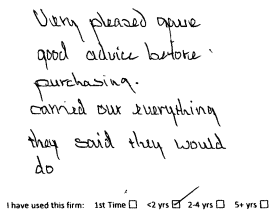 Very pleased gave
good advice before
purchasing.
carried out everything
they said they would
do
I have used this firm: 1st Time ☐ <2 yrs ☑ 2-4 yrs ☐ 5+ yrs ☐